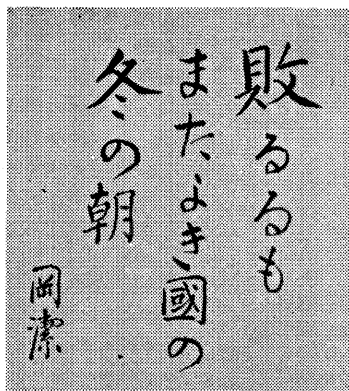 敗るるも
またよき國の
冬の朝
岡潔